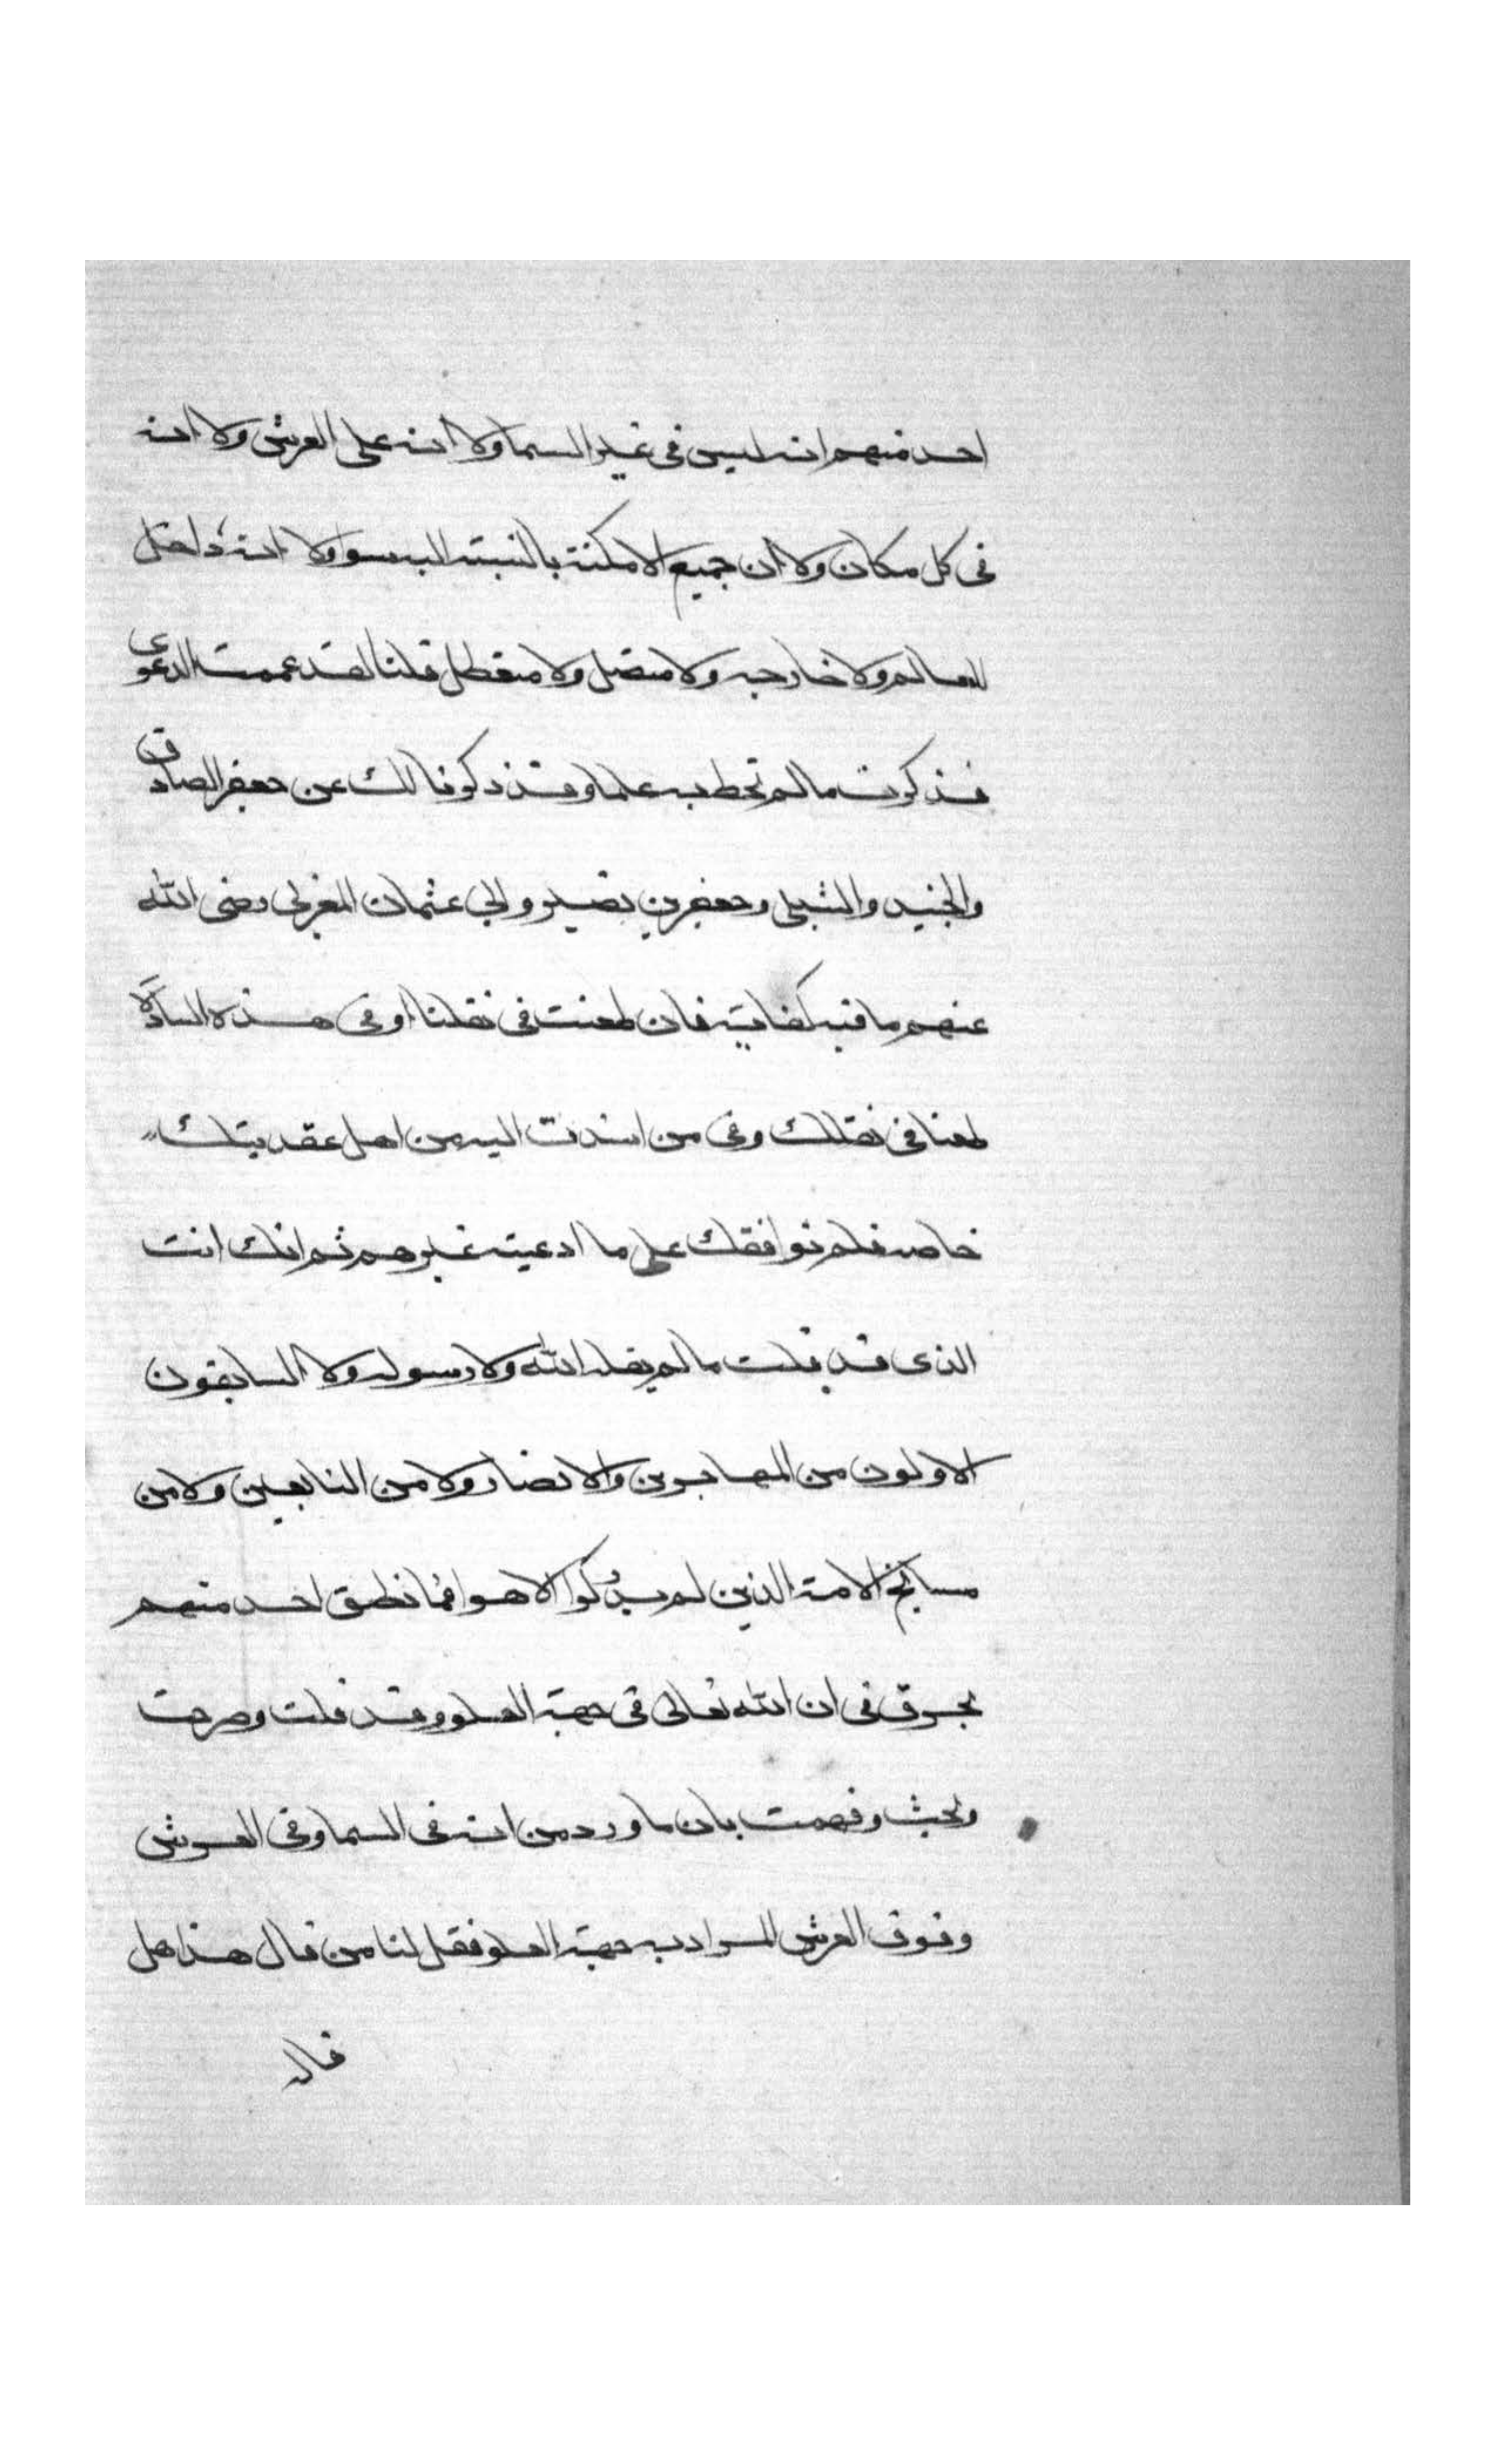 احد منهم انه ليس في غير السما ولا انه على العرش ولا انه
في كل مكان ولا ان جميع الامكنة بالنسبة اليه سوا ولا انه داخل
العالم ولا خارجه ولا متصل ولا منفصل قلنا لقد عممت الدعوى
فذكرت ما لم تحط به علما وقد ذكرنا لك عن جعفر الصادق
والجنيد والشبلي وجعفر بن نصير وابي عثمان المغربي رضي الله
عنهم ما فيه كفاية فان طعنت في نقلنا او في هذه السادة
طعنا في نقلك وفي من اسندت اليه من اهل عقديتك
خاصه فلم نوافقك على ما ادعيته غيرهم ثم انك انت
الذي قد قلت ما لم يقله الله ولا رسوله ولا السابقون
الاولون من المهاجرين والانصار ولا من التابعين ولا من
مسائخ الامة الذين لم يدركوا الاهوا فما نطق احد منهم
بحرف في ان الله تعالى في جهة العلو وقد قلت وصرحت
وبحثت وفهمت بان ما ورد من انه في السما وفي العرش
وفوق العرش المراد به جهة العلو فقل لنا من قال هذا هل
قاله